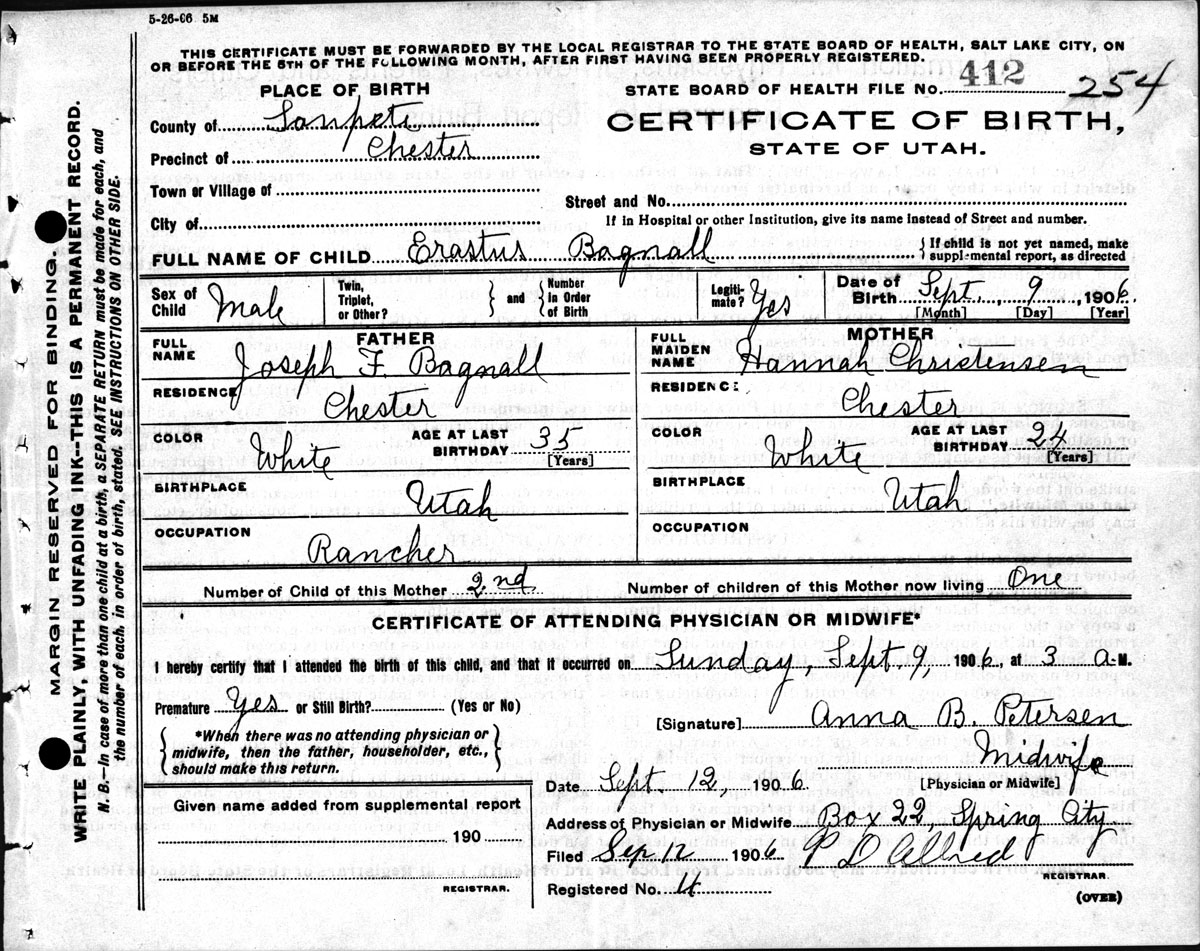 5-26-06 5M
THIS CERTIFICATE MUST BE FORWARDED BY THE LOCAL REGISTRAR TO THE STATE BOARD OF HEALTH, SALT LAKE CITY, ON
OR BEFORE THE 5TH OF THE FOLLOWING MONTH, AFTER FIRST HAVING BEEN PROPERLY REGISTERED.
PLACE OF BIRTH
STATE BOARD OF HEALTH FILE No. 412 254
County of Sanpete
CERTIFICATE OF BIRTH,
Precinct of Chester
STATE OF UTAH.
Town or Village of
Street and No.
City of
If in Hospital or other Institution, give its name instead of Street and number.
FULL NAME OF CHILD Erastus Bagnall { If child is not yet named, make
supplemental report, as directed
Sex of Child Male
Twin, Triplet, or Other? } and { Number in Order of Birth
Legiti-mate? Yes
Date of Birth Sept. 9, 1906.
[Month] [Day] [Year]
FATHER
FULL NAME Joseph F. Bagnall
RESIDENCE Chester
COLOR White
AGE AT LAST BIRTHDAY 35 [Years]
BIRTHPLACE Utah
OCCUPATION Rancher
MOTHER
FULL MAIDEN NAME Hannah Christensen
RESIDENCE Chester
COLOR White
AGE AT LAST BIRTHDAY 24 [Years]
BIRTHPLACE Utah
OCCUPATION
Number of Child of this Mother 2nd
Number of children of this Mother now living One
CERTIFICATE OF ATTENDING PHYSICIAN OR MIDWIFE*
I hereby certify that I attended the birth of this child, and that it occurred on Sunday, Sept. 9, 1906, at 3 a.M.
Premature Yes or Still Birth? (Yes or No)
[Signature] Anna B. Petersen
{ *When there was no attending physician or
midwife, then the father, householder, etc.,
should make this return. }
Midwife
[Physician or Midwife]
Date Sept. 12, 1906.
Given name added from supplemental report
190
REGISTRAR.
Address of Physician or Midwife Box 22, Spring City
Filed Sep 12 1906 P D Allred
REGISTRAR.
Registered No. 4
(OVER)
MARGIN RESERVED FOR BINDING.
WRITE PLAINLY, WITH UNFADING INK--THIS IS A PERMANENT RECORD.
N. B.—In case of more than one child at a birth, a SEPARATE RETURN must be made for each, and
the number of each, in order of birth, stated. SEE INSTRUCTIONS ON OTHER SIDE.